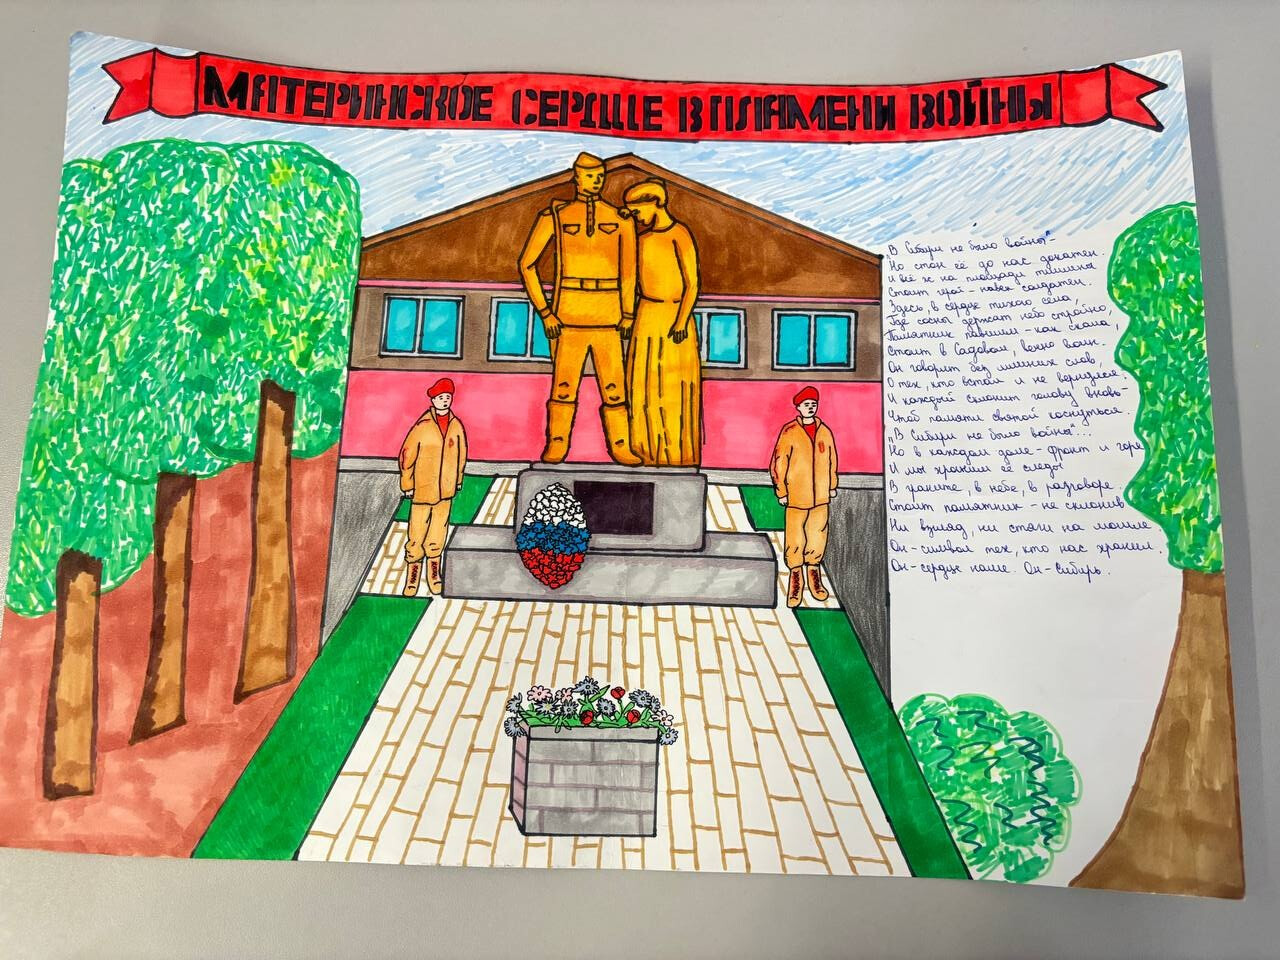 МАТЕРИНСКОЕ СЕРДЦЕ В ПЛАМЕНИ ВОЙНЫ
В Сибири не было войны"-
Но стон её до нас докатен.
И всё ж на площади тишины
Стоит герой - навек солдатен.
Здесь, в сердце тихого села,
Где сосны держат небо стройно,
Памятник павшим - как скала,
Стоит в Садовом, вечно воин.
Он говорит без лишних слов,
О тех, кто встал и не вернулся.-
И каждый склонит голову вновь
Чтоб памяти святой коснуться.
„В Сибири не было войны"...
Но в каждом доме - фронт и горе
И мы храним её следы
В граните, в небе, в разговоре
Стоит памятник - не склонив
Ни взгляд, ни стали на могиле.
Он - символ тех, кто нас хранил.
Он - сердце наше. Он - Сибирь.